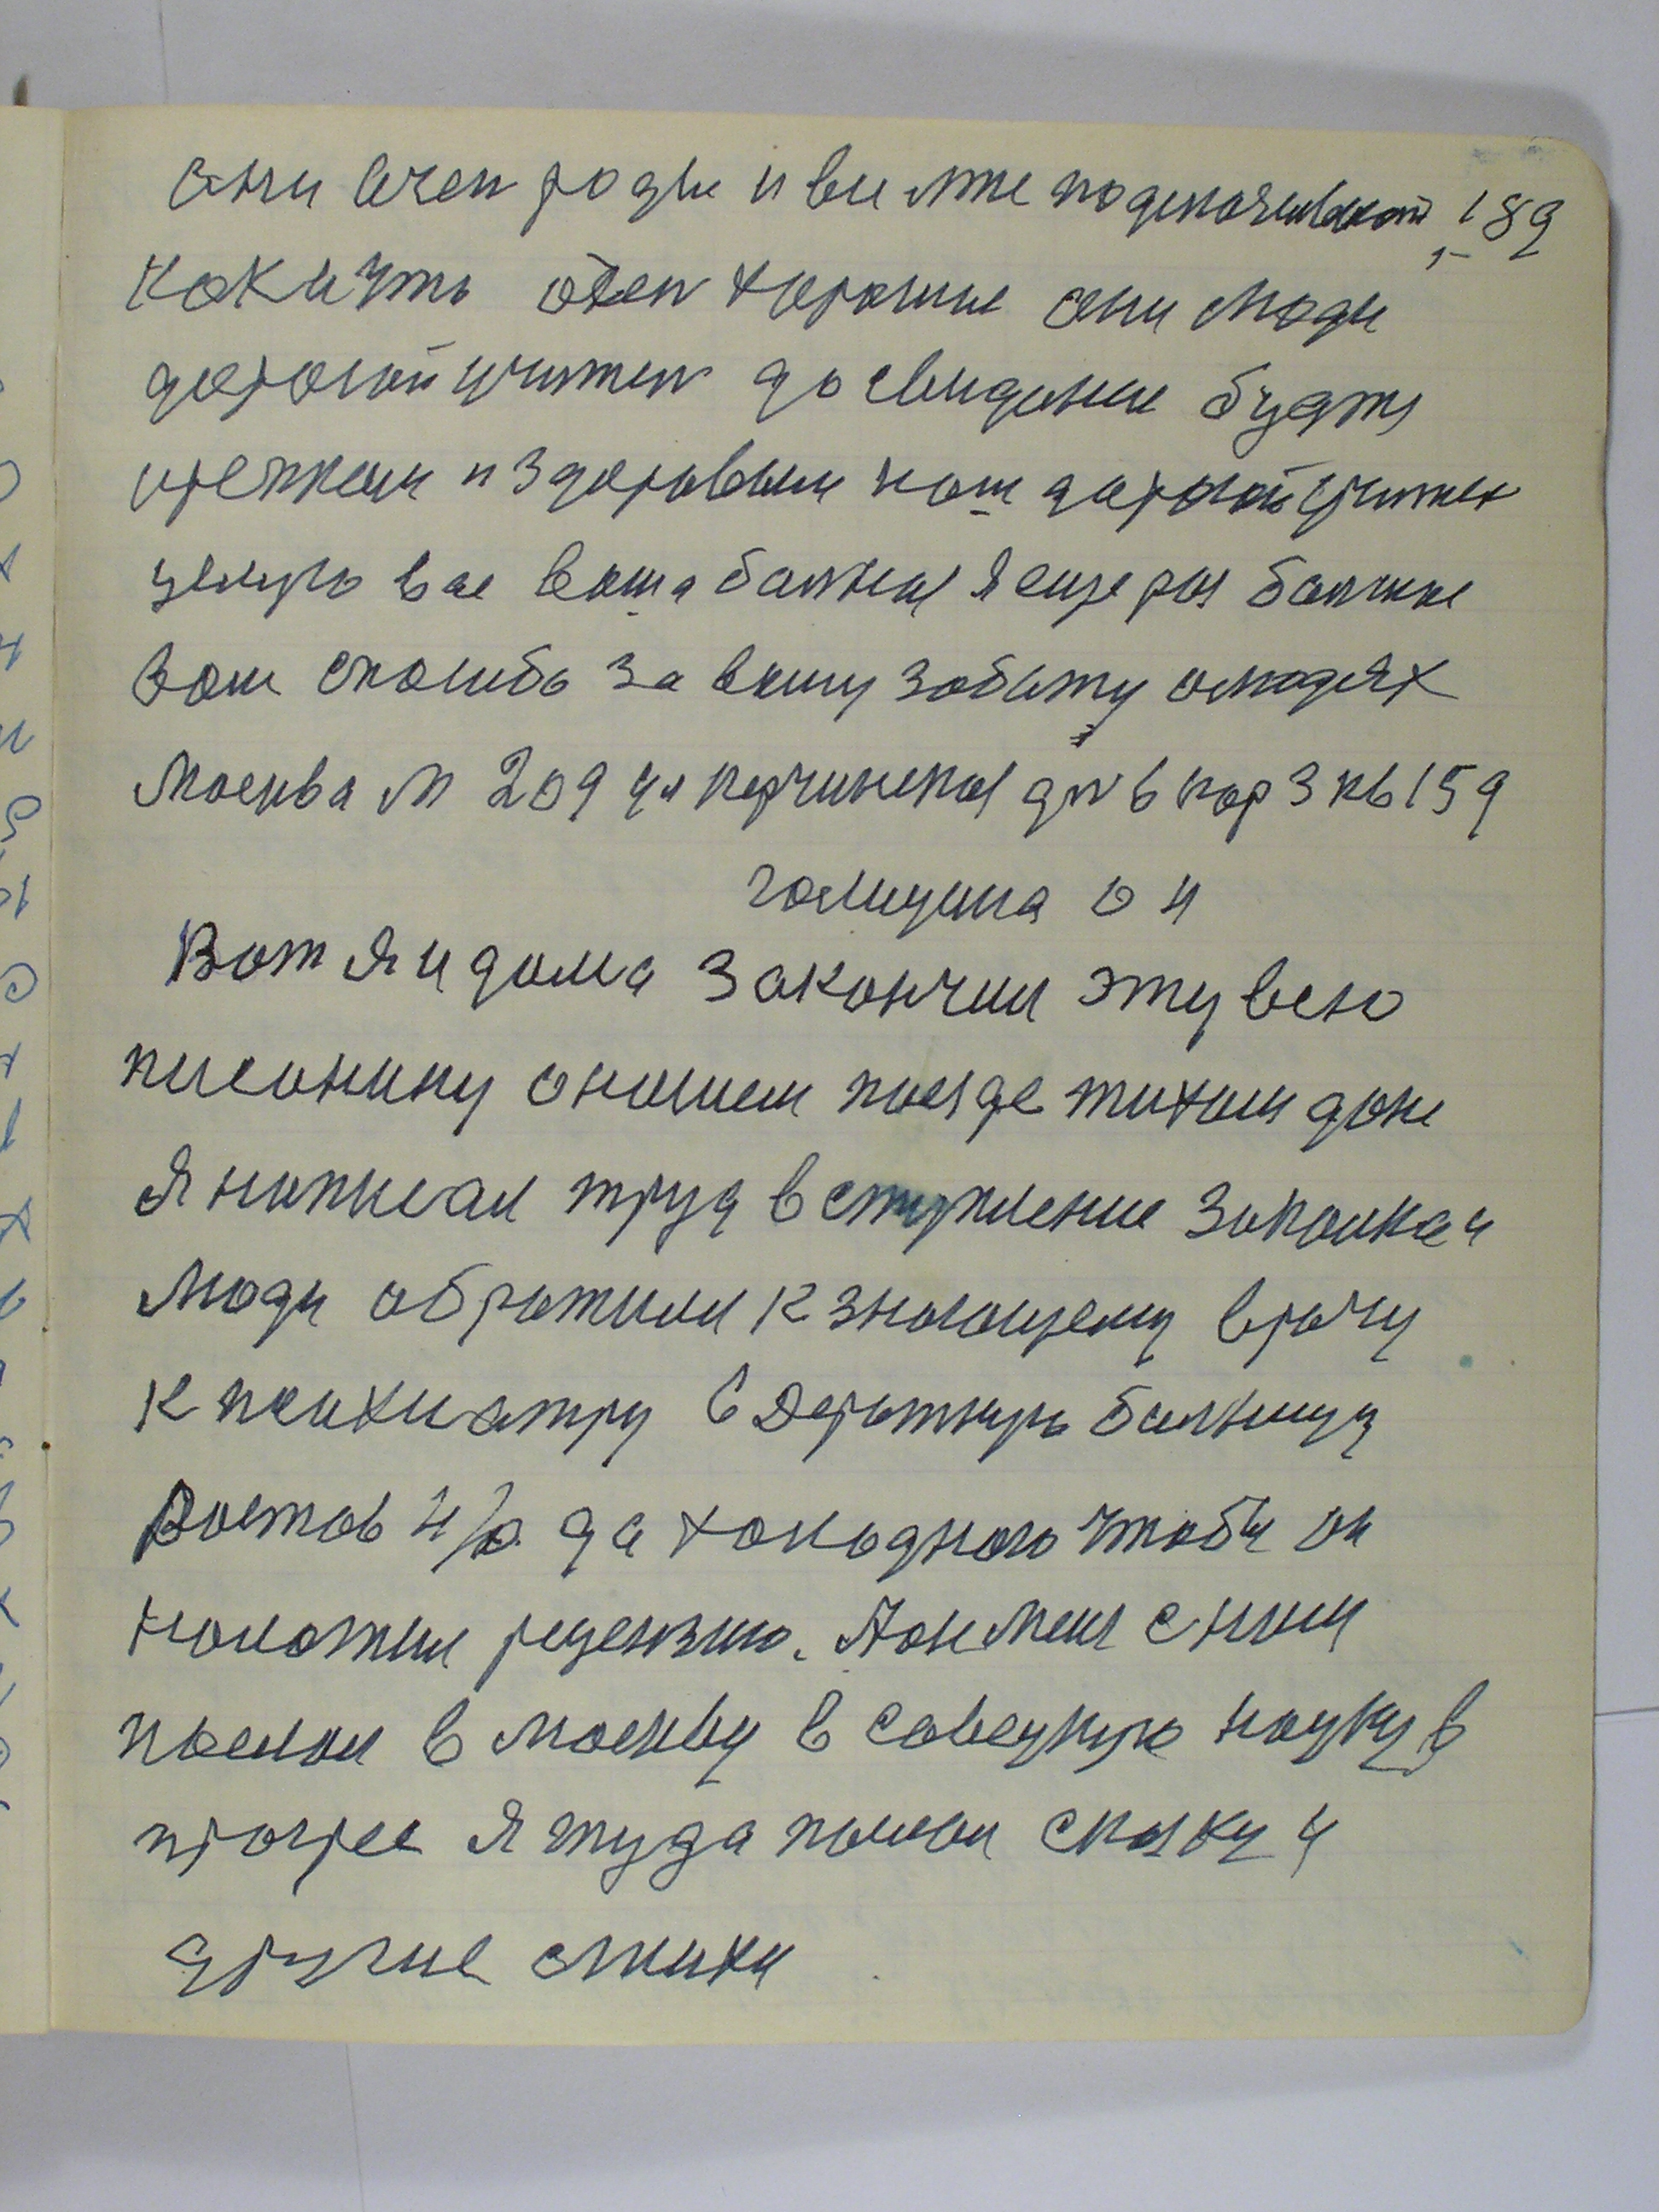 они очен рады и все мне подсказывают 189
как и что очен хорошие они люди
дорогой учител до свидание будте
крепким и здоровым наш дорогой учител
целую вас ваша болная я еще раз болшое
вам спасибо за вашу заботу о людях
Москва М 209 ул керчинская дм 6 кор 3 кв 159
галицина О И
Вот я и дома закончил эту всю
писанину о нашем поезде тихим доне
Я написал труд вступление закалкаи
люди обратили к знающему врачу
к психиатру в Дератную болницу
Ростов н/Д да ходного чтобы он
положил рецензию. А он меня с ним
послал в москву в совецкую науку в
прогрес я туда послал сказку и
другие стихи